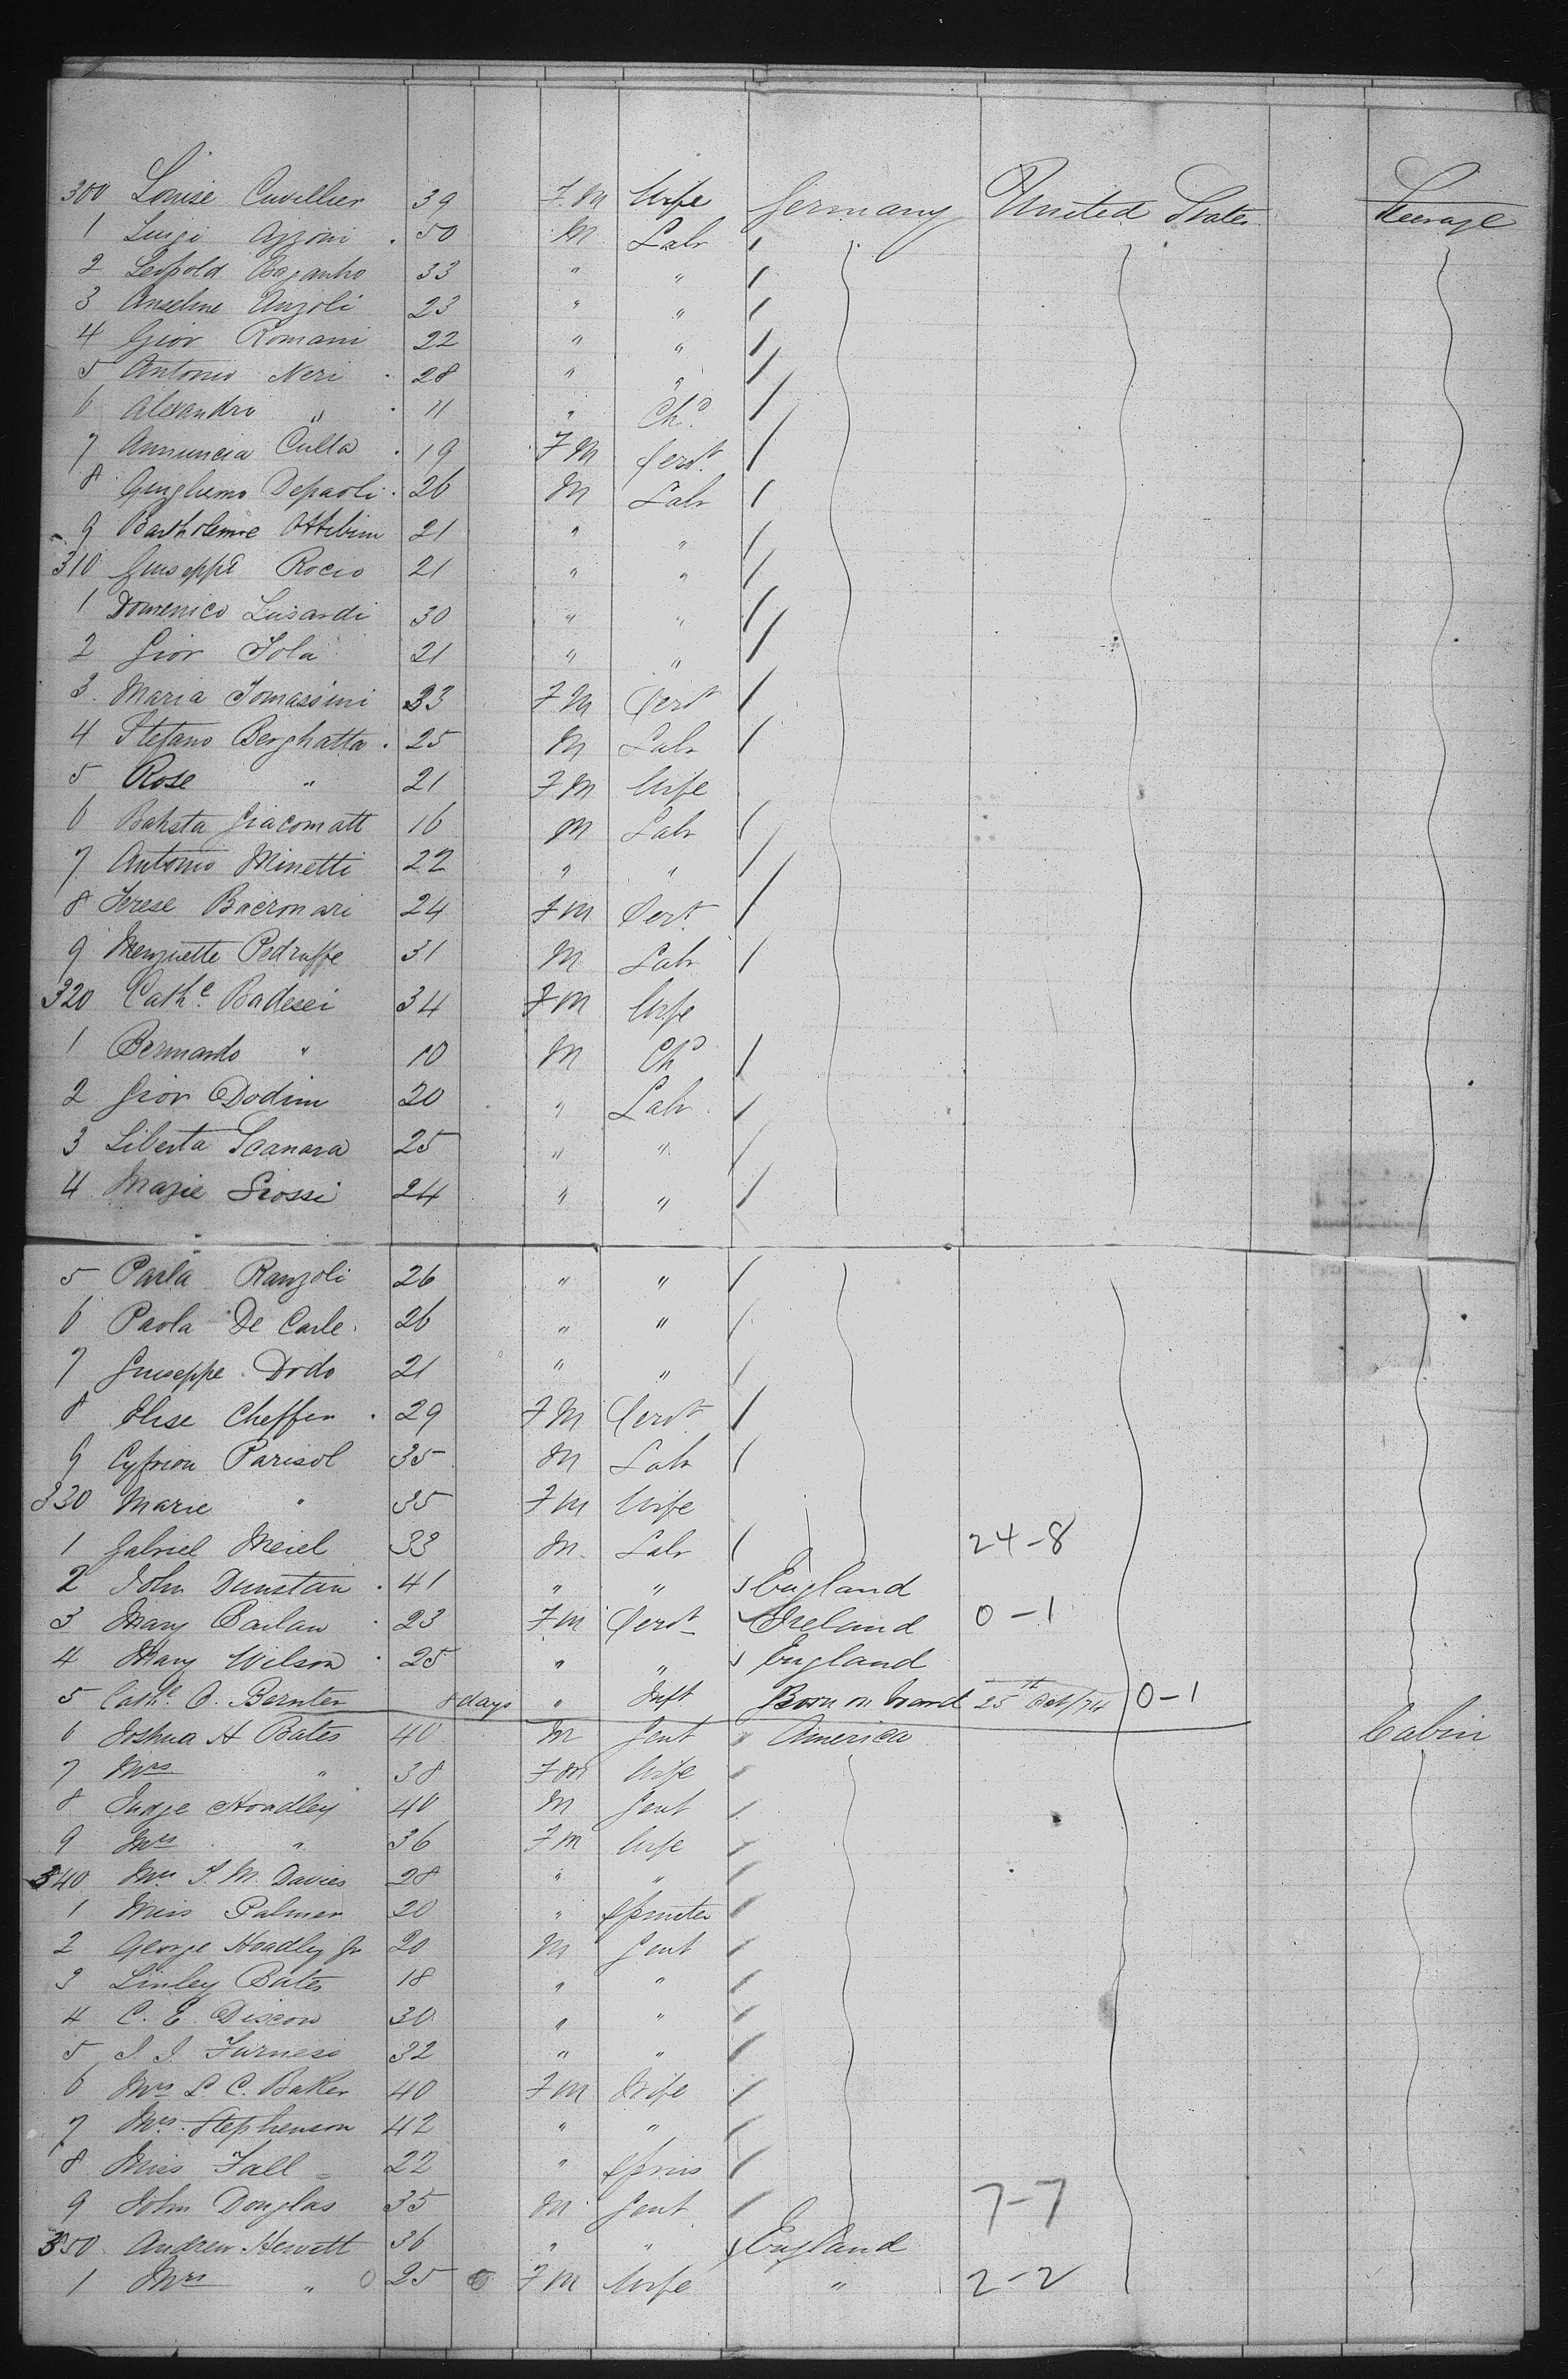 300 Louise Cuvillier 39 F.M Wife Germany United States Steerage
1 Luigi Azzoni 50 M Labr
2 Leopold Baganho 33 " "
3 Anselme Anzoli 23 " "
4 Giov Romani 22 " "
5 Antonio Neri 28 " "
6 Alexandro " 11 " Chd
7 Annuncia Culla 19 F M Servt
8 Gugliemo Depaoli 26 M Labr
9 Bartholemie 21 " "
310 Guiseppe Rocio 21 " "
1 Domenico Lusardi 30 " "
2 Giov Sola 21 " "
3 Maria Tomassini 33 F M Servt
4 Stefano Berghatta 25 M Labr
5 Rose " 21 F M Wife
6 Batista Giacomatt 16 M Labr
7 Antonio Minetti 22 " "
8 Terese Bacronari 24 F M Servt
9 Menguette Pedruffe 31 M Labr
320 Cathe Badesei 34 F M Wife
1 Bernardo " 10 M Chd
2 Giov Dodini 20 " Labr
3 Liberta Scanara 25 " "
4 Mazie Grossi 24 " "
5 Parla Ranzoli 26 " "
6 Paola De Carle 26 " "
7 Guiseppe Dodo 21 " "
8 Elise Cheffer 29 F M Servt
9 Cyprien Parisol 35 M Labr
330 Marie " 35 F M Wife
1 Gabriel Meiel 33 M Labr 24-8
2 John Dunstan 41 " " England
3 Mary Barlan 23 F M Servt Ireland 0-1
4 Mary Wilson 25 " " England
5 Cathe O. Bernter 8 days " Inft Born on board 25th Oct/74 0-1
6 Joshua H Bates 40 M Gent America Cabin
7 Mrs " 38 F M Wife
8 Judge Hoadley 40 M Gent
9 Mrs " 36 F M Wife
340 Mrs S. M. Davies 28 " "
1 Miss Palmer 20 " Spinster
2 George Hoadley Jr 20 M Gent
3 Linley Bates 18 " "
4 C. E. Discon 30 " "
5 J. J. Furness 32 " "
6 Mrs L. C. Baker 40 F M Wife
7 Mrs Stephenson 42 " "
8 Miss Fall 22 " Spins
9 John Douglas 35 M Gent 7-7
350 Andrew Hewett 36 " " England
1 Mrs " 25 F M Wife " 2-2